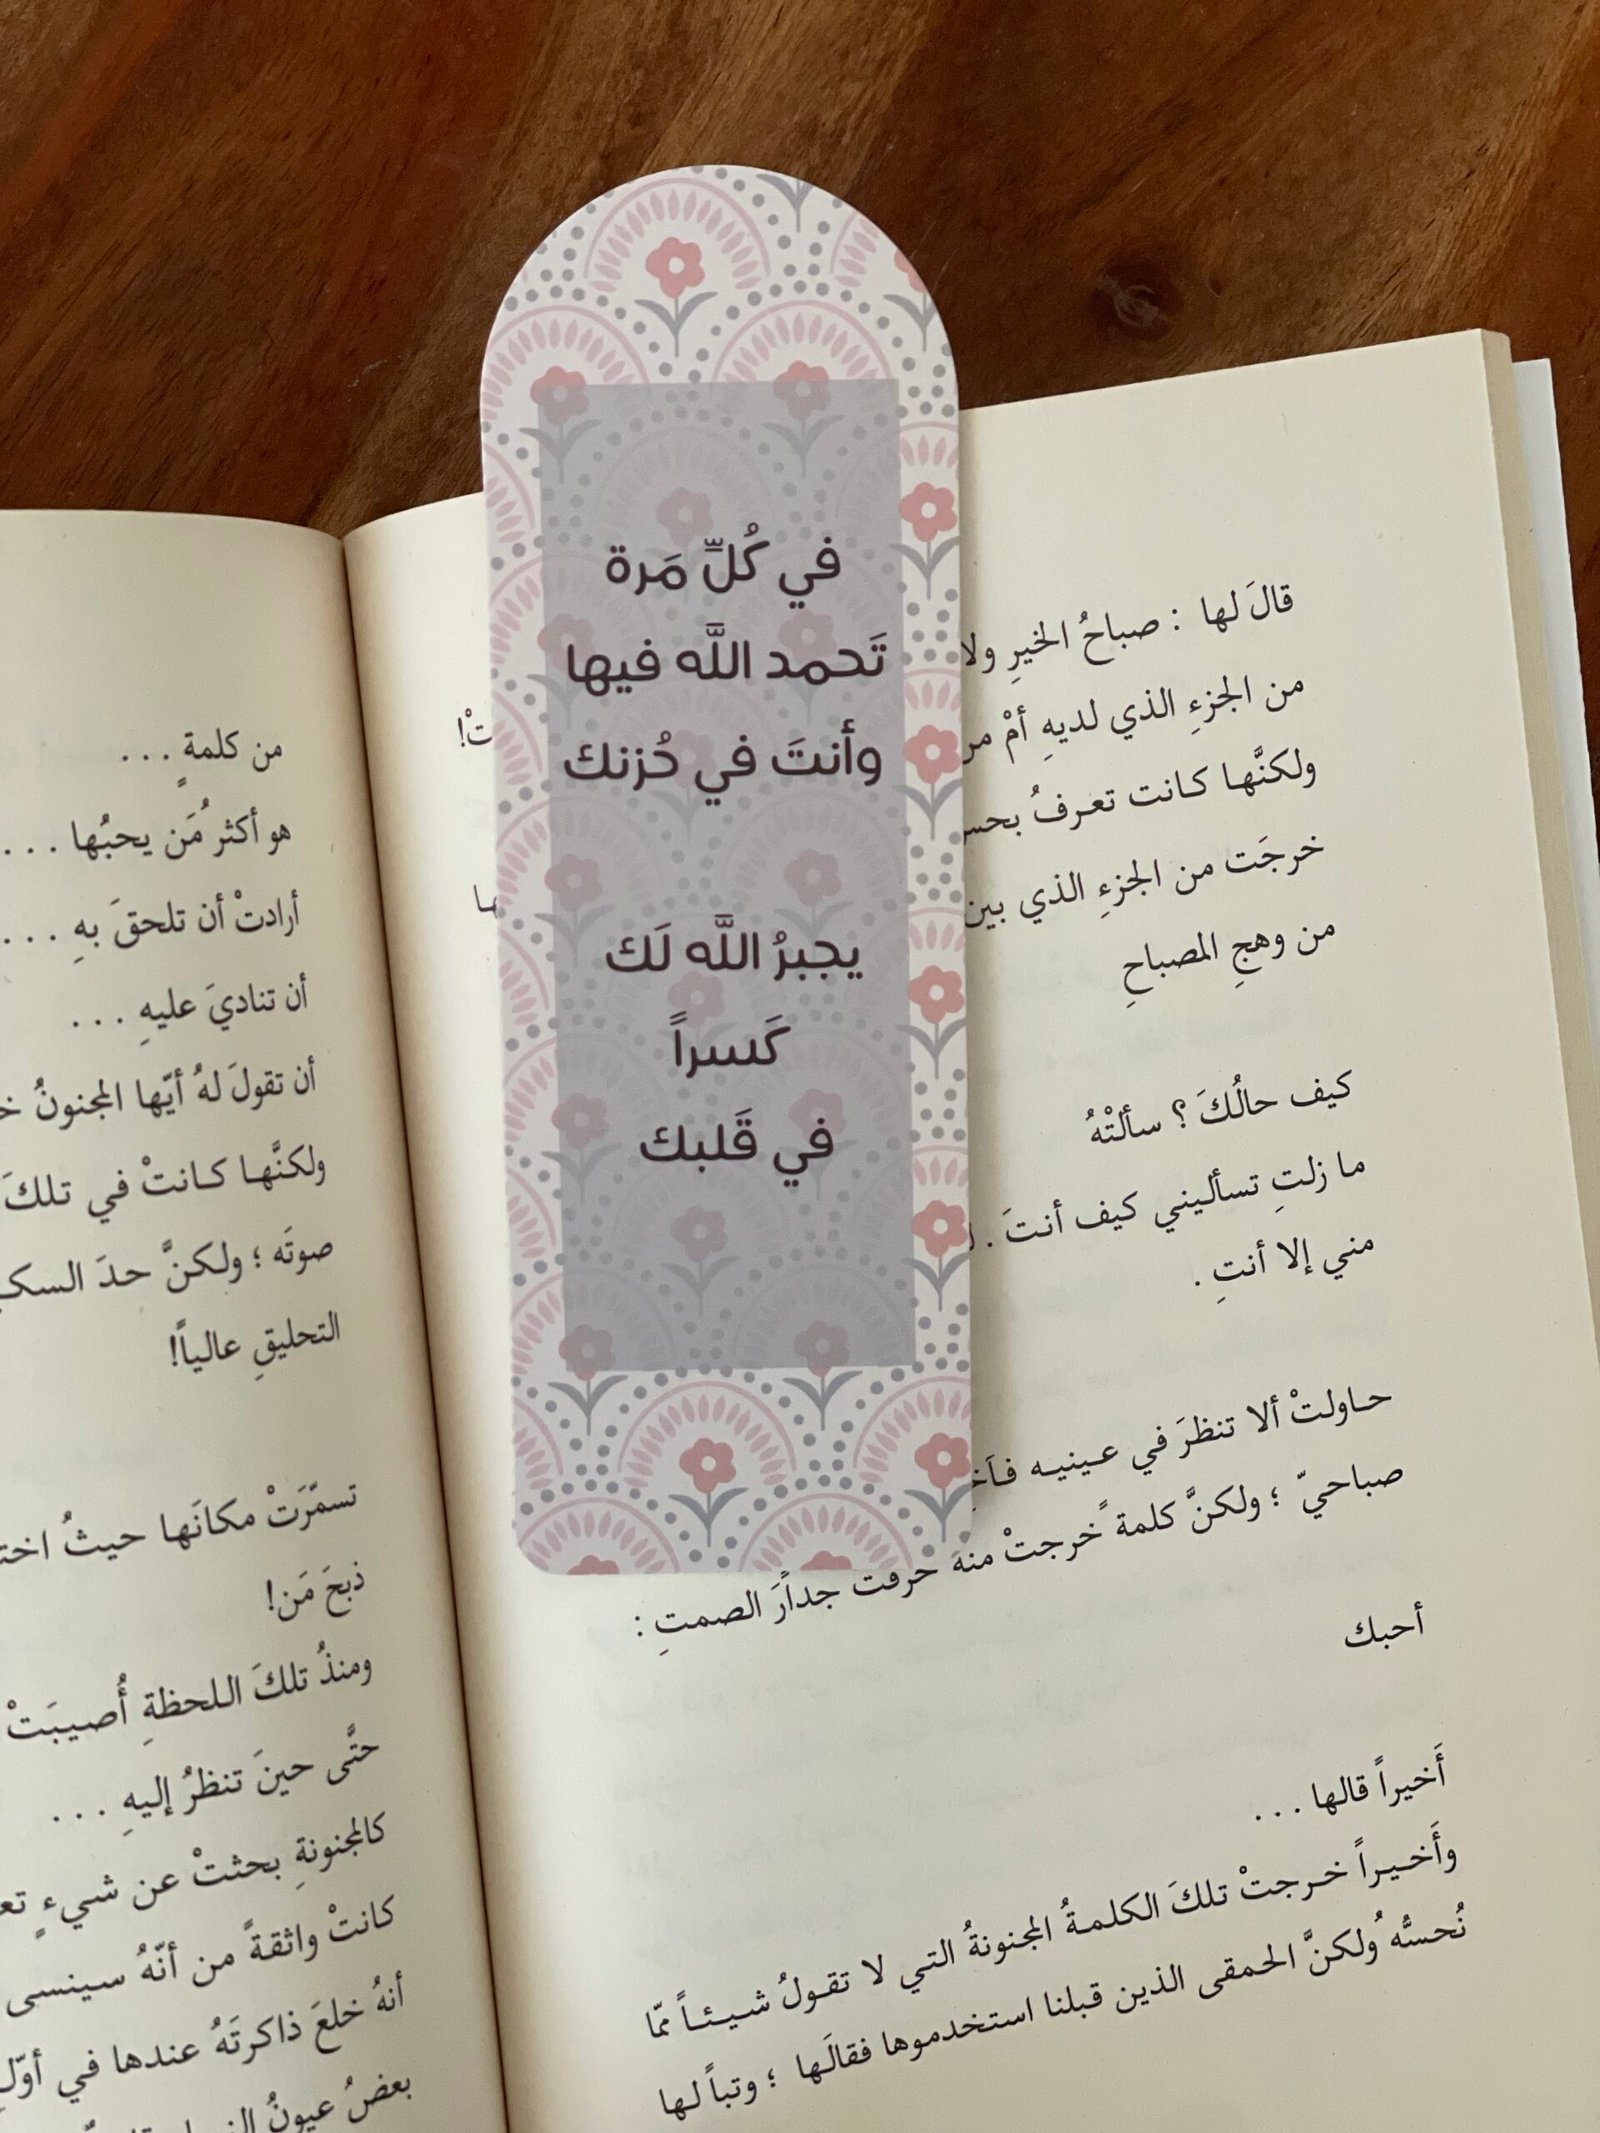 في كُلِّ مَرة
تَحمد اللَّه فيها
وأنتَ في حُزنك
يجبرُ اللَّه لَك
كَسراً
في قَلبك
قالَ لها : صباحُ الخيرِ ولا
من الجزءِ الذي لديهِ أمْ
ولكنَّها كانت تعرفُ
خرجَت من الجزءِ الذي بين
من وهجِ المصباحِ
كيف حالُكَ ؟ سألتْهُ
ما زلتِ تسأليني كيف أنتَ .
مني إلا أنتِ .
حاولتْ ألا تنظرَ في عينيه
صباحيّ ؛ ولكنَّ كلمةً خرجتْ منهُ
جدارَ الصمتِ :
أحبك
أَخيراً قالها . . .
وأَخيراً خرجتْ تلكَ الكلمةُ المجنونةُ التي لا تقولُ شيئاً ممّا
نُحسُّه ُولكنَّ الحمقى الذين قبلنا استخدموها فقالَها ؛ وتباً لها
من كلمةٍ . . .
هو أكثر ُمَن يحبُها . . .
أرادتْ أن تلحقَ بهِ . . .
أن تناديَ عليهِ . . .
أن تقولَ لهُ أيّها المجنونُ
ولكنَّها كانتْ في تلكَ
صوتَه ؛ ولكنَّ حدَ
التحليقِ عالياً!
تسمّرَتْ مكانَها حيثُ
ذبحَ مَن!
ومنذُ تلكَ اللحظةِ أُصيبَتْ
حتَّى حينَ تنظرُ إليهِ . . .
كالمجنونةِ بحثتْ عن شيءٍ
كانتْ واثقةً من أنّهُ سينسى
أنهُ خلعَ ذاكرتَهُ عندها في
بعضُ عيونُ